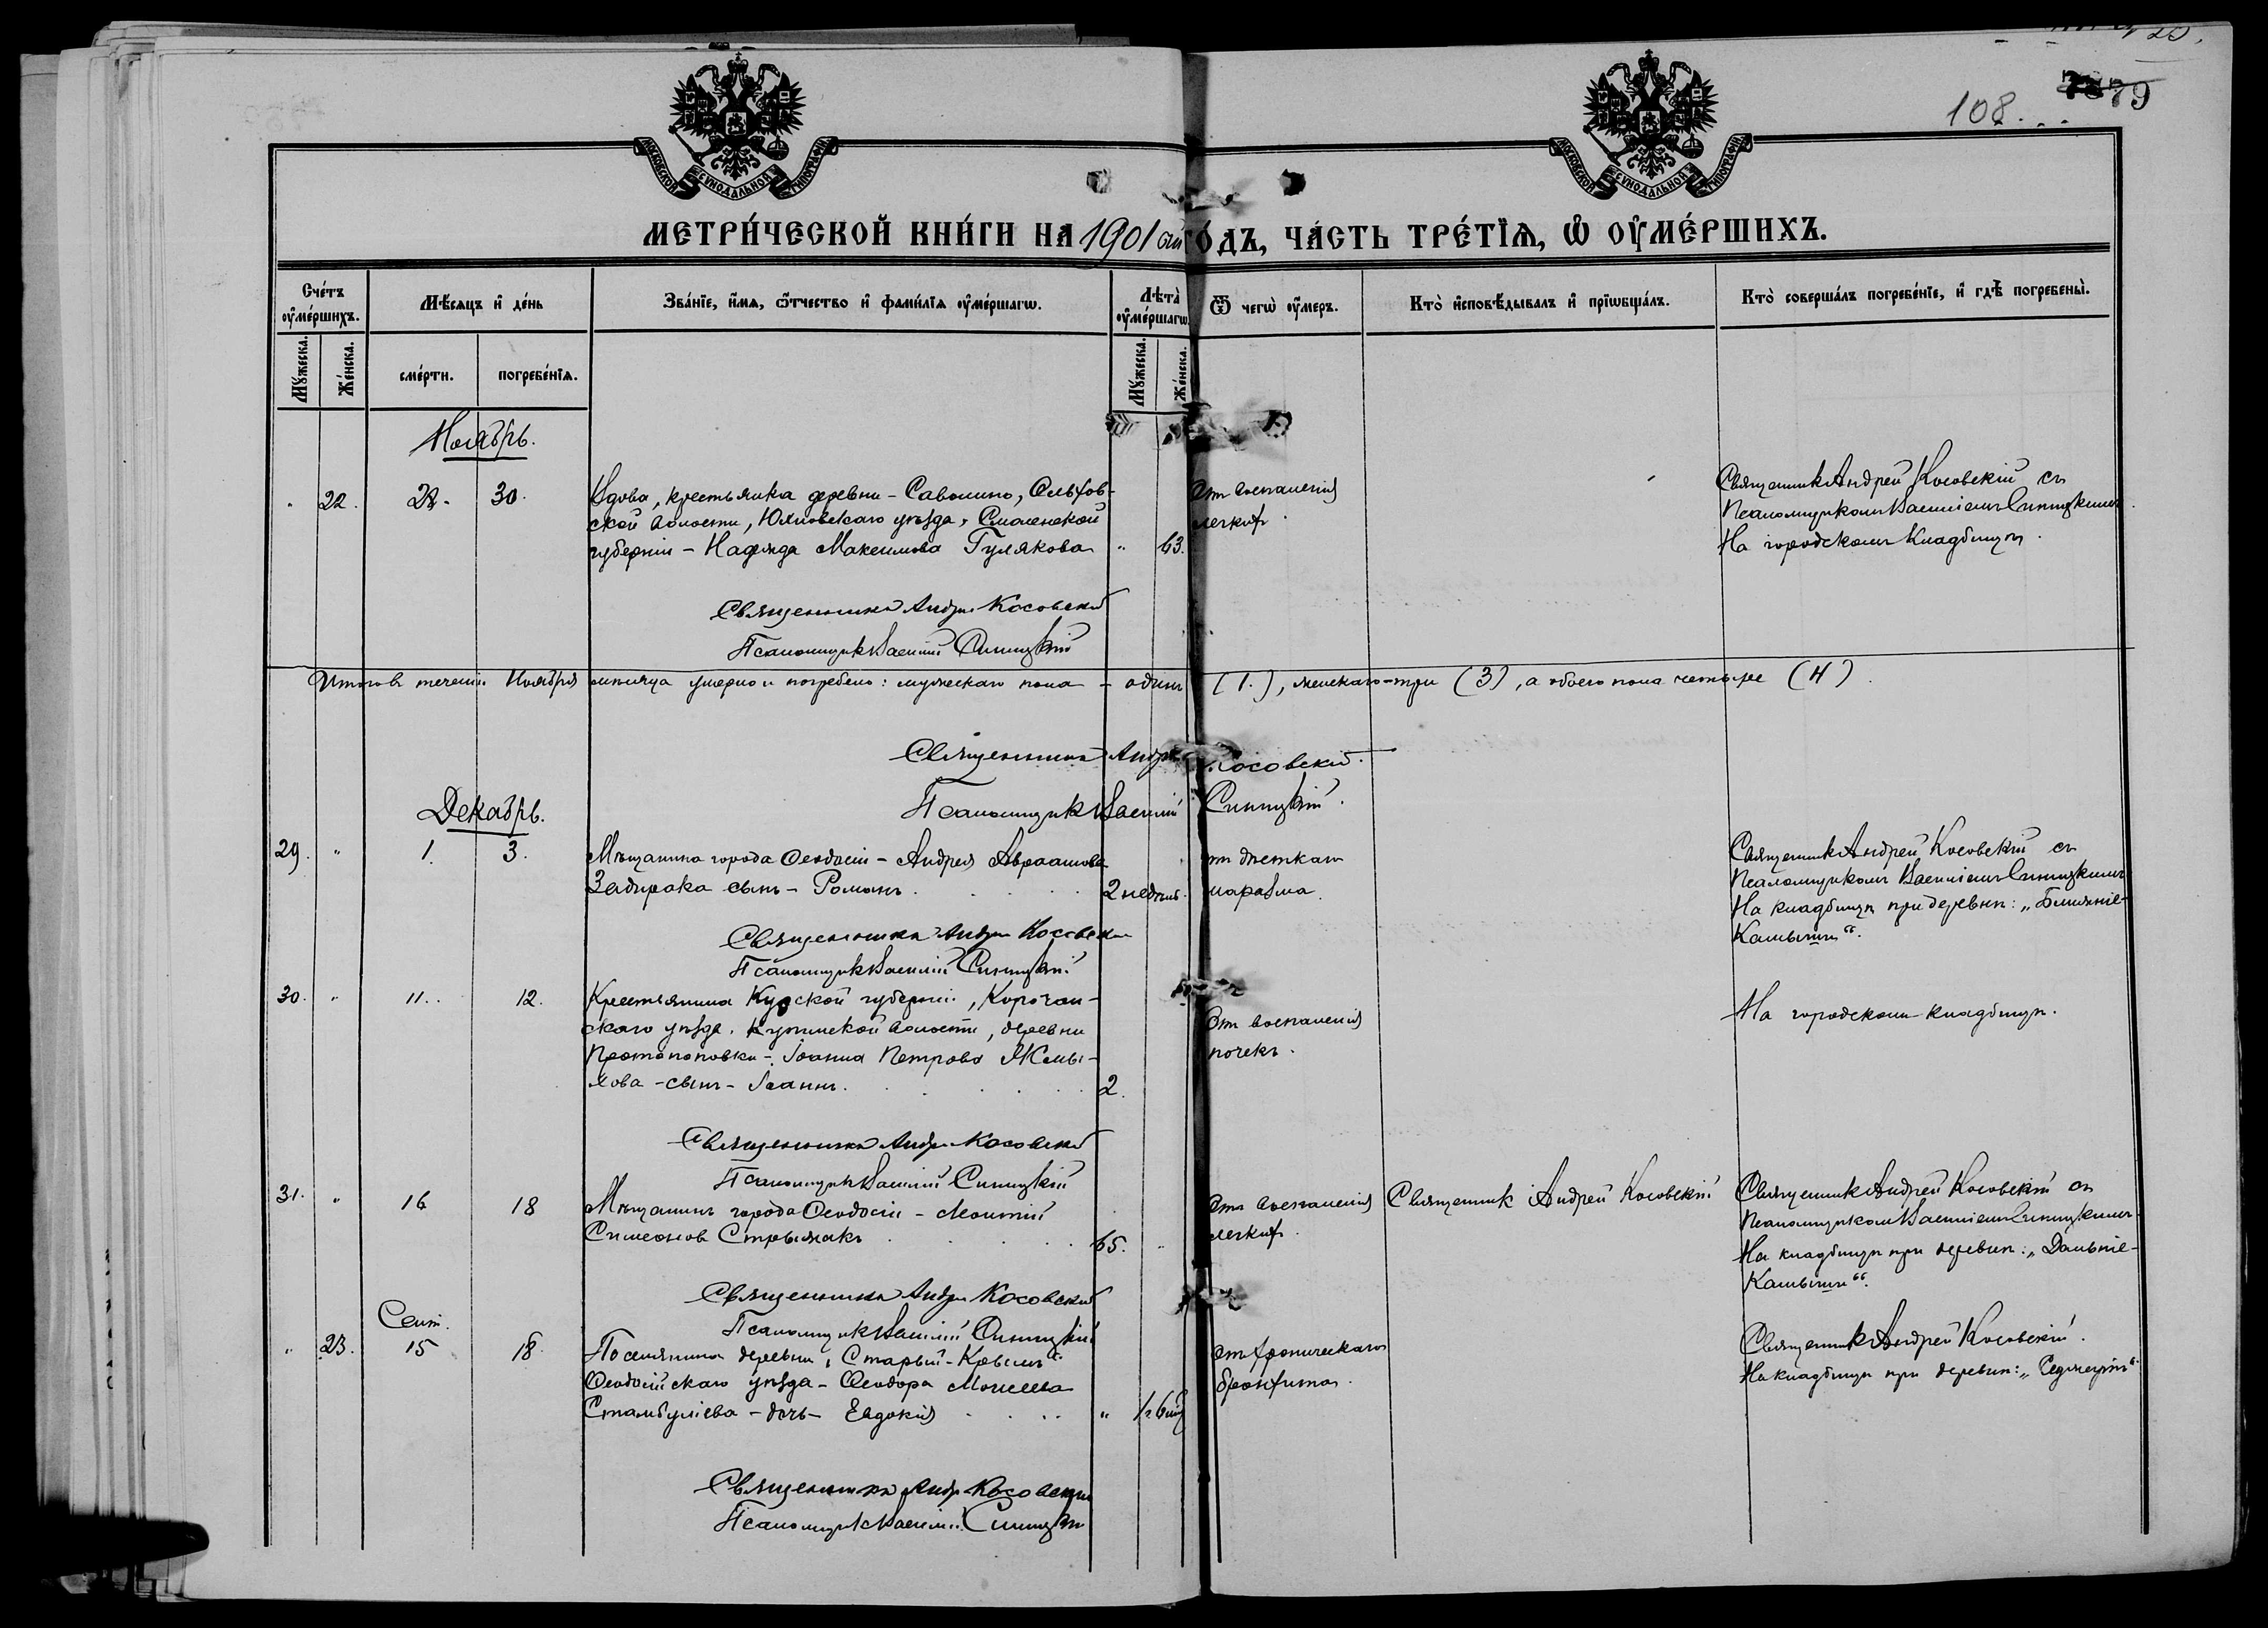 108.
79
МОСКОВСКОЙ СУНОДАЛЬНОЙ ТИПОГРАФІИ
МОСКОВСКОЙ СУНОДАЛЬНОЙ ТИПОГРАФІИ
МЕТРИ́ЧЕСКОЙ КНИ́ГИ НА 1901 ый ГО́ДЪ, ЧА́СТЬ ТРЕ́ТІѦ, Ѡ ОУМЕ́РШИХЪ.
Счéтъ оумéршихъ.
Мѣ́сяцъ и дéнь
Звáнїе, и́мя, ѻ́тчество и фамѝлїя оумéршагѡ.
Лѣтà оумéршагѡ.
Ѿ чегѡ̀ оу́меръ.
Ктò исповѣ́дывалъ и прїѡбщáлъ.
Ктò совершáлъ погребéнїе, и гдѣ̀ погребены̀.
Му́жеска.
Жéнска.
смéрти.
погребéнїя.
Му́жеска.
Жéнска.
Ноябрь.
" 22. 28. 30. Вдова, крестьянка деревни - Савонино, Ельхов-
ской волости, Юхновскаго уѣзда, Смоленской
губерніи - Надежда Максимова Гулякова " 63.
Отъ воспаленія
легкихъ.
Священникъ Андрей Косовскій съ
Псаломщикомъ Василіемъ Синицкимъ.
На городскомъ кладбищѣ.
Священникъ Андрей Косовскій
Псаломщикъ Василій Синицкій
Итого въ теченіи Ноября мѣсяца умерло и погребено: мужескаго пола - одинъ (1.), женскаго - три (3), а обоего пола четыре (4).
Священникъ Андрей Косовскій.
Псаломщикъ Василій Синицкій.
Декабрь.
29. " 1. 3. Мѣщанина города Ѳеодосіи - Андрея Авраамова
Задирака сынъ - Романъ. 2 недѣль.
отъ дѣтскаго
маразма.
Священникъ Андрей Косовскій съ
Псаломщикомъ Василіемъ Синицкимъ
На кладбищѣ при деревнѣ: „Ближніе-
Камыши“.
Священникъ Андрей Косовскій
Псаломщикъ Василій Синицкій
30. " 11. 12. Крестьянина Курской губерніи, Корочан-
скаго уѣзда, Купинской волости, деревни
Протопоповки - Іоанна Петрова Жмы-
хова - сынъ - Іоаннъ. 2.
Отъ воспаленія
почекъ.
На городскомъ кладбищѣ.
Священникъ Андрей Косовскій
Псаломщикъ Василій Синицкій
31. " 16 18 Мѣщанинъ города Ѳеодосіи - Леонтій
Симеоновъ Стрыжакъ 65. "
отъ воспаленія
легкихъ.
Священникъ Андрей Косовскій
Священникъ Андрей Косовскій съ
Псаломщикомъ Василіемъ Синицкимъ
На кладбищѣ при деревнѣ: „Дальніе-
Камыши“.
Священникъ Андрей Косовскій
Псаломщикъ Василій Синицкій
Сент.
" 23. 15 18. Поселянина деревни „Старый-Крымъ“
Ѳеодосійскаго уѣзда - Ѳеодора Моисеева
Стамбуліева - дочь - Евдокія " 1г. 6 мѣс
отъ хроническаго
бронхита.
Священникъ Андрей Косовскій.
На кладбищѣ при деревнѣ:
Священникъ Андрей Косовскій
Псаломщикъ Василій Синицкій